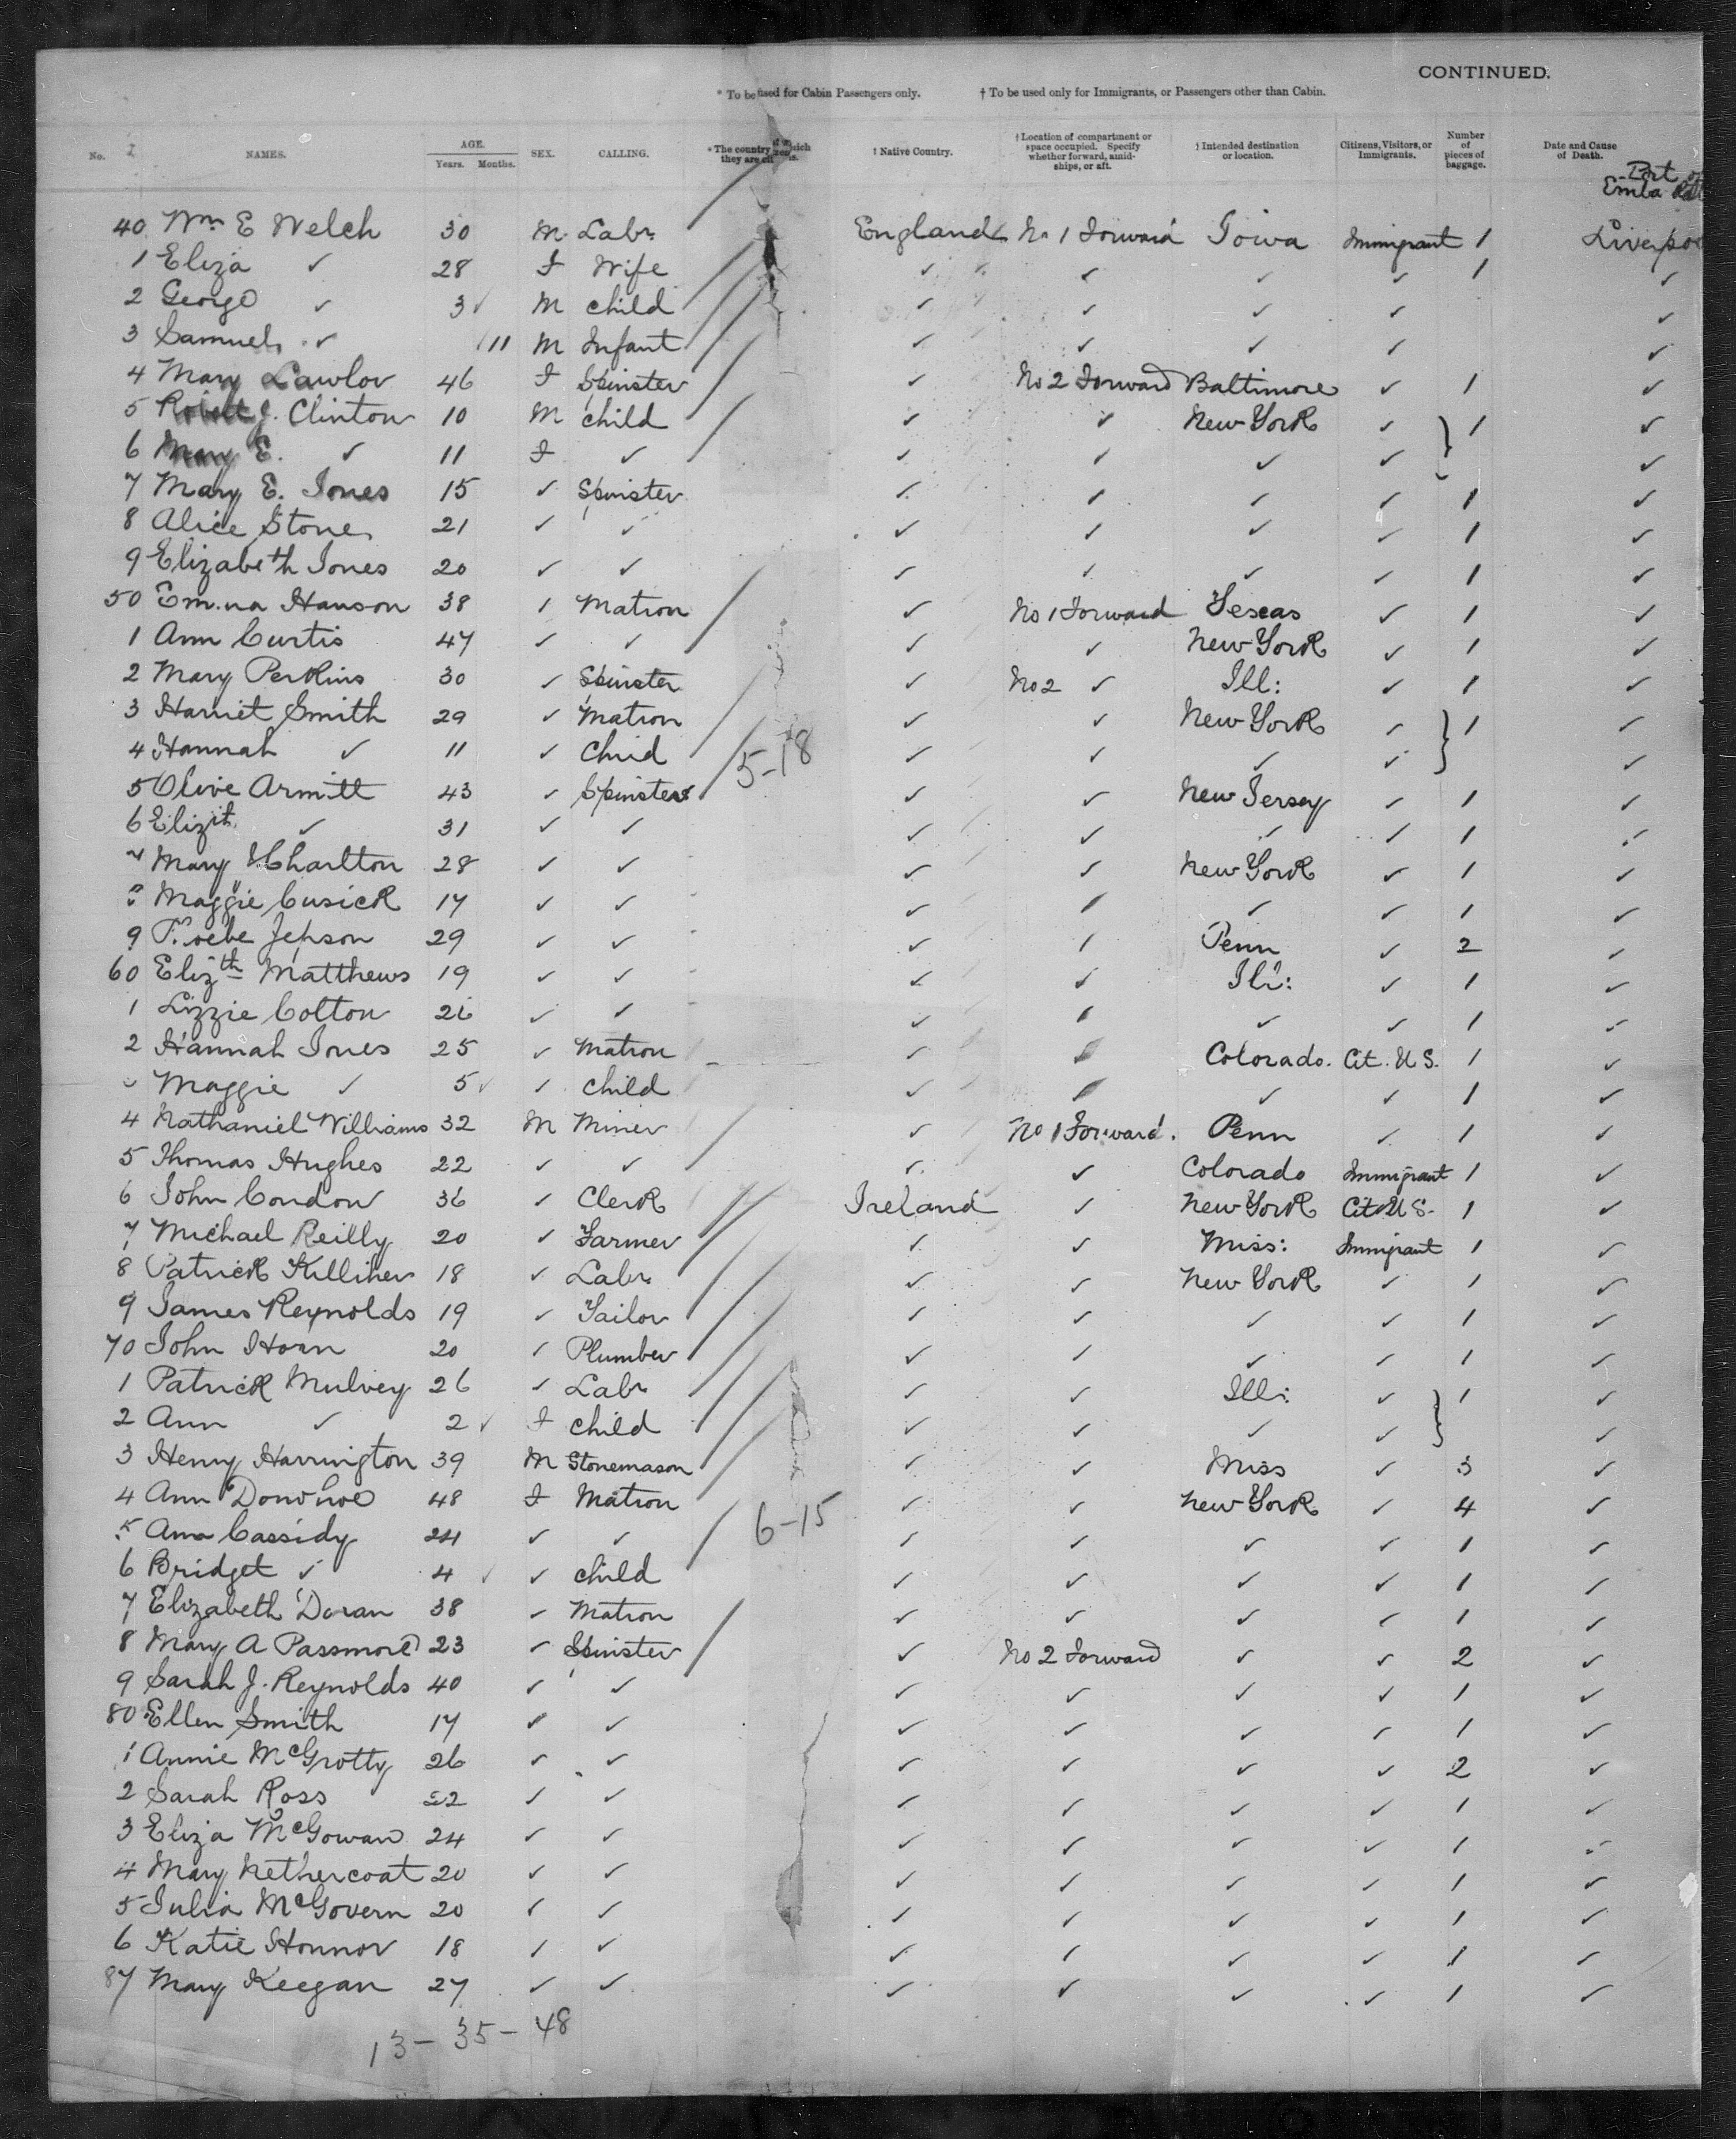 CONTINUED.
* To be used for Cabin Passengers only. † To be used only for Immigrants, or Passengers other than Cabin.
No. NAMES. AGE. Years. Months. SEX. CALLING. * The country of which they are citizens. † Native Country. † Location of compartment or space occupied. Specify whether forward, amidships, or aft. † Intended destination or location. Citizens, Visitors, or Immigrants. Number of pieces of baggage. Date and Cause of Death.
Port of
Emba
40 Wm E Welch 30 M Labr England No 1 Forward Iowa Immigrant 1 Liverpoo
1 Eliza ✓ 28 F Wife ✓ ✓ ✓ ✓ 1 ✓
2 George ✓ 3 ✓ M child ✓ ✓ ✓ ✓ ✓
3 Samuel ✓ 11 M Infant ✓ ✓ ✓ ✓ ✓
4 Mary Lawlor 46 F Spinster ✓ No 2 Forward Baltimore ✓ 1 ✓
5 Robert J. Clinton 10 M child ✓ ✓ New York ✓ } 1 ✓
6 Mary E. ✓ 11 F ✓ ✓ ✓ ✓ ✓ ✓
7 Mary E. Jones 15 ✓ Spinster ✓ ✓ ✓ ✓ 1 ✓
8 Alice Stone 21 ✓ ✓ ✓ ✓ ✓ ✓ 1 ✓
9 Elizabeth Jones 20 ✓ ✓ ✓ ✓ ✓ ✓ 1 ✓
50 Emma Hanson 38 ✓ Matron ✓ No 1 Forward Texas ✓ 1 ✓
1 Ann Curtis 47 ✓ ✓ ✓ ✓ New York ✓ 1 ✓
2 Mary Perkins 30 ✓ Spinster ✓ No 2 ✓ Ill: ✓ 1 ✓
3 Harriet Smith 29 ✓ Matron ✓ ✓ New York ✓ } 1 ✓
4 Hannah ✓ 11 ✓ Child 5-18 ✓ ✓ ✓ ✓ ✓
5 Olive Armitt 43 ✓ Spinster ✓ ✓ New Jersey ✓ 1 ✓
6 Elizth ✓ 31 ✓ ✓ ✓ ✓ ✓ ✓ 1 ✓
7 Mary Charlton 28 ✓ ✓ ✓ ✓ New York ✓ 1 ✓
8 Maggie Cusick 17 ✓ ✓ ✓ ✓ ✓ ✓ 1 ✓
9 Phoebe Jepson 29 ✓ ✓ ✓ ✓ Penn ✓ 2 ✓
60 Elizth Matthews 19 ✓ ✓ ✓ ✓ Ill: ✓ 1 ✓
1 Lizzie Colton 26 ✓ ✓ ✓ ✓ ✓ ✓ 1 ✓
2 Hannah Jones 25 ✓ Matron ✓ ✓ Colorado. Cit. U S. 1 ✓
3 Maggie ✓ 5 ✓ ✓ child ✓ ✓ ✓ ✓ 1 ✓
4 Nathaniel Williams 32 M Miner ✓ No 1 Forward. Penn ✓ 1 ✓
5 Thomas Hughes 22 ✓ ✓ ✓ ✓ Colorado Immigrant 1 ✓
6 John Condon 36 ✓ Clerk Ireland ✓ New York Cit U S. 1 ✓
7 Michael Reilly 20 ✓ Farmer ✓ ✓ Miss: Immigrant 1 ✓
8 Patrick Killiher 18 ✓ Labr ✓ ✓ New York ✓ 1 ✓
9 James Reynolds 19 ✓ Tailor ✓ ✓ ✓ ✓ 1 ✓
70 John Horan 20 ✓ Plumber ✓ ✓ ✓ ✓ 1 ✓
1 Patrick Mulvey 26 ✓ Labr ✓ ✓ Ill: ✓ } 1 ✓
2 Ann ✓ 2 ✓ F child ✓ ✓ ✓ ✓ ✓
3 Henry Harrington 39 M Stonemason ✓ ✓ Miss ✓ 3 ✓
4 Ann Donohoe 48 F Matron ✓ ✓ New York ✓ 4 ✓
5 Ann Cassidy 24 ✓ ✓ 6-15 ✓ ✓ ✓ ✓ 1 ✓
6 Bridget ✓ 4 ✓ ✓ child ✓ ✓ ✓ ✓ 1 ✓
7 Elizabeth Doran 38 ✓ Matron ✓ ✓ ✓ ✓ 1 ✓
8 Mary A Passmore 23 ✓ Spinster ✓ No 2 Forward ✓ ✓ 2 ✓
9 Sarah J. Reynolds 40 ✓ ✓ ✓ ✓ ✓ ✓ 1 ✓
80 Ellen Smith 17 ✓ ✓ ✓ ✓ ✓ ✓ 1 ✓
1 Annie McGrotty 26 ✓ ✓ ✓ ✓ ✓ ✓ 2 ✓
2 Sarah Ross 22 ✓ ✓ ✓ ✓ ✓ ✓ 1 ✓
3 Eliza McGowan 24 ✓ ✓ ✓ ✓ ✓ ✓ 1 ✓
4 Mary Nethercoat 20 ✓ ✓ ✓ ✓ ✓ ✓ 1 ✓
5 Julia McGovern 20 ✓ ✓ ✓ ✓ ✓ ✓ 1 ✓
6 Katie Honnor 18 ✓ ✓ ✓ ✓ ✓ ✓ 1 ✓
87 Mary Keegan 27 ✓ ✓ ✓ ✓ ✓ ✓ 1 ✓
13 - 35 - 48